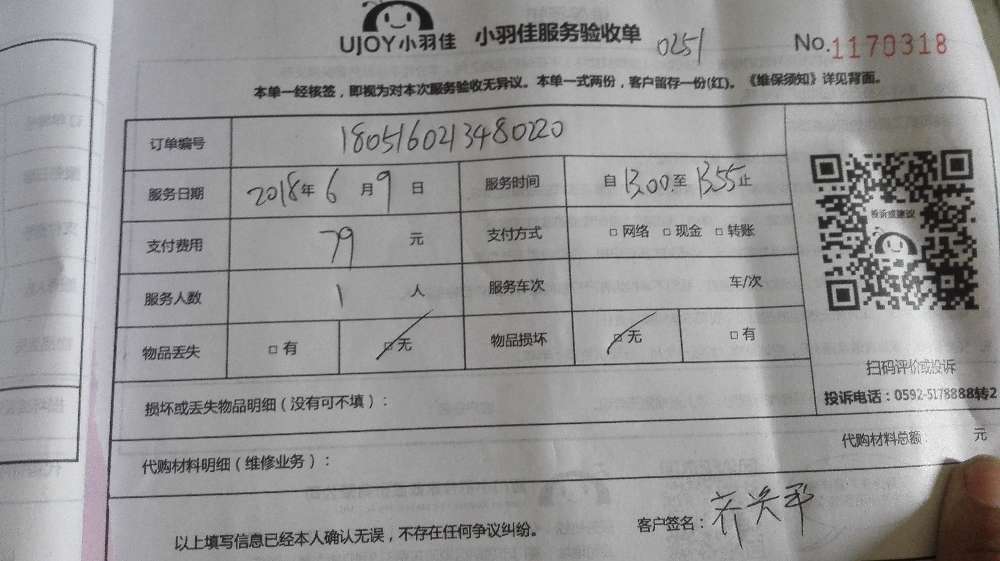 UJOY小羽佳 小羽佳服务验收单 0251 No.1170318
本单一经核签，即视为对本次服务验收无异议。本单一式两份，客户留存一份(红)。《维保须知》详见背面。
订单编号 1805160213480220
服务日期 2018年6月9日 服务时间 自13:00至13:55止
支付费用 79元 支付方式 □网络 □现金 □转账
投诉或建议
服务人数 1人 服务车次 车/次
物品丢失 □有 □无 物品损坏 □无 □有
扫码评价或投诉
投诉电话：0592-5178888转2
损坏或丢失物品明细（没有可不填）：
代购材料明细（维修业务）： 代购材料总额： 元
以上填写信息已经本人确认无误，不存在任何争议纠纷。 客户签名：